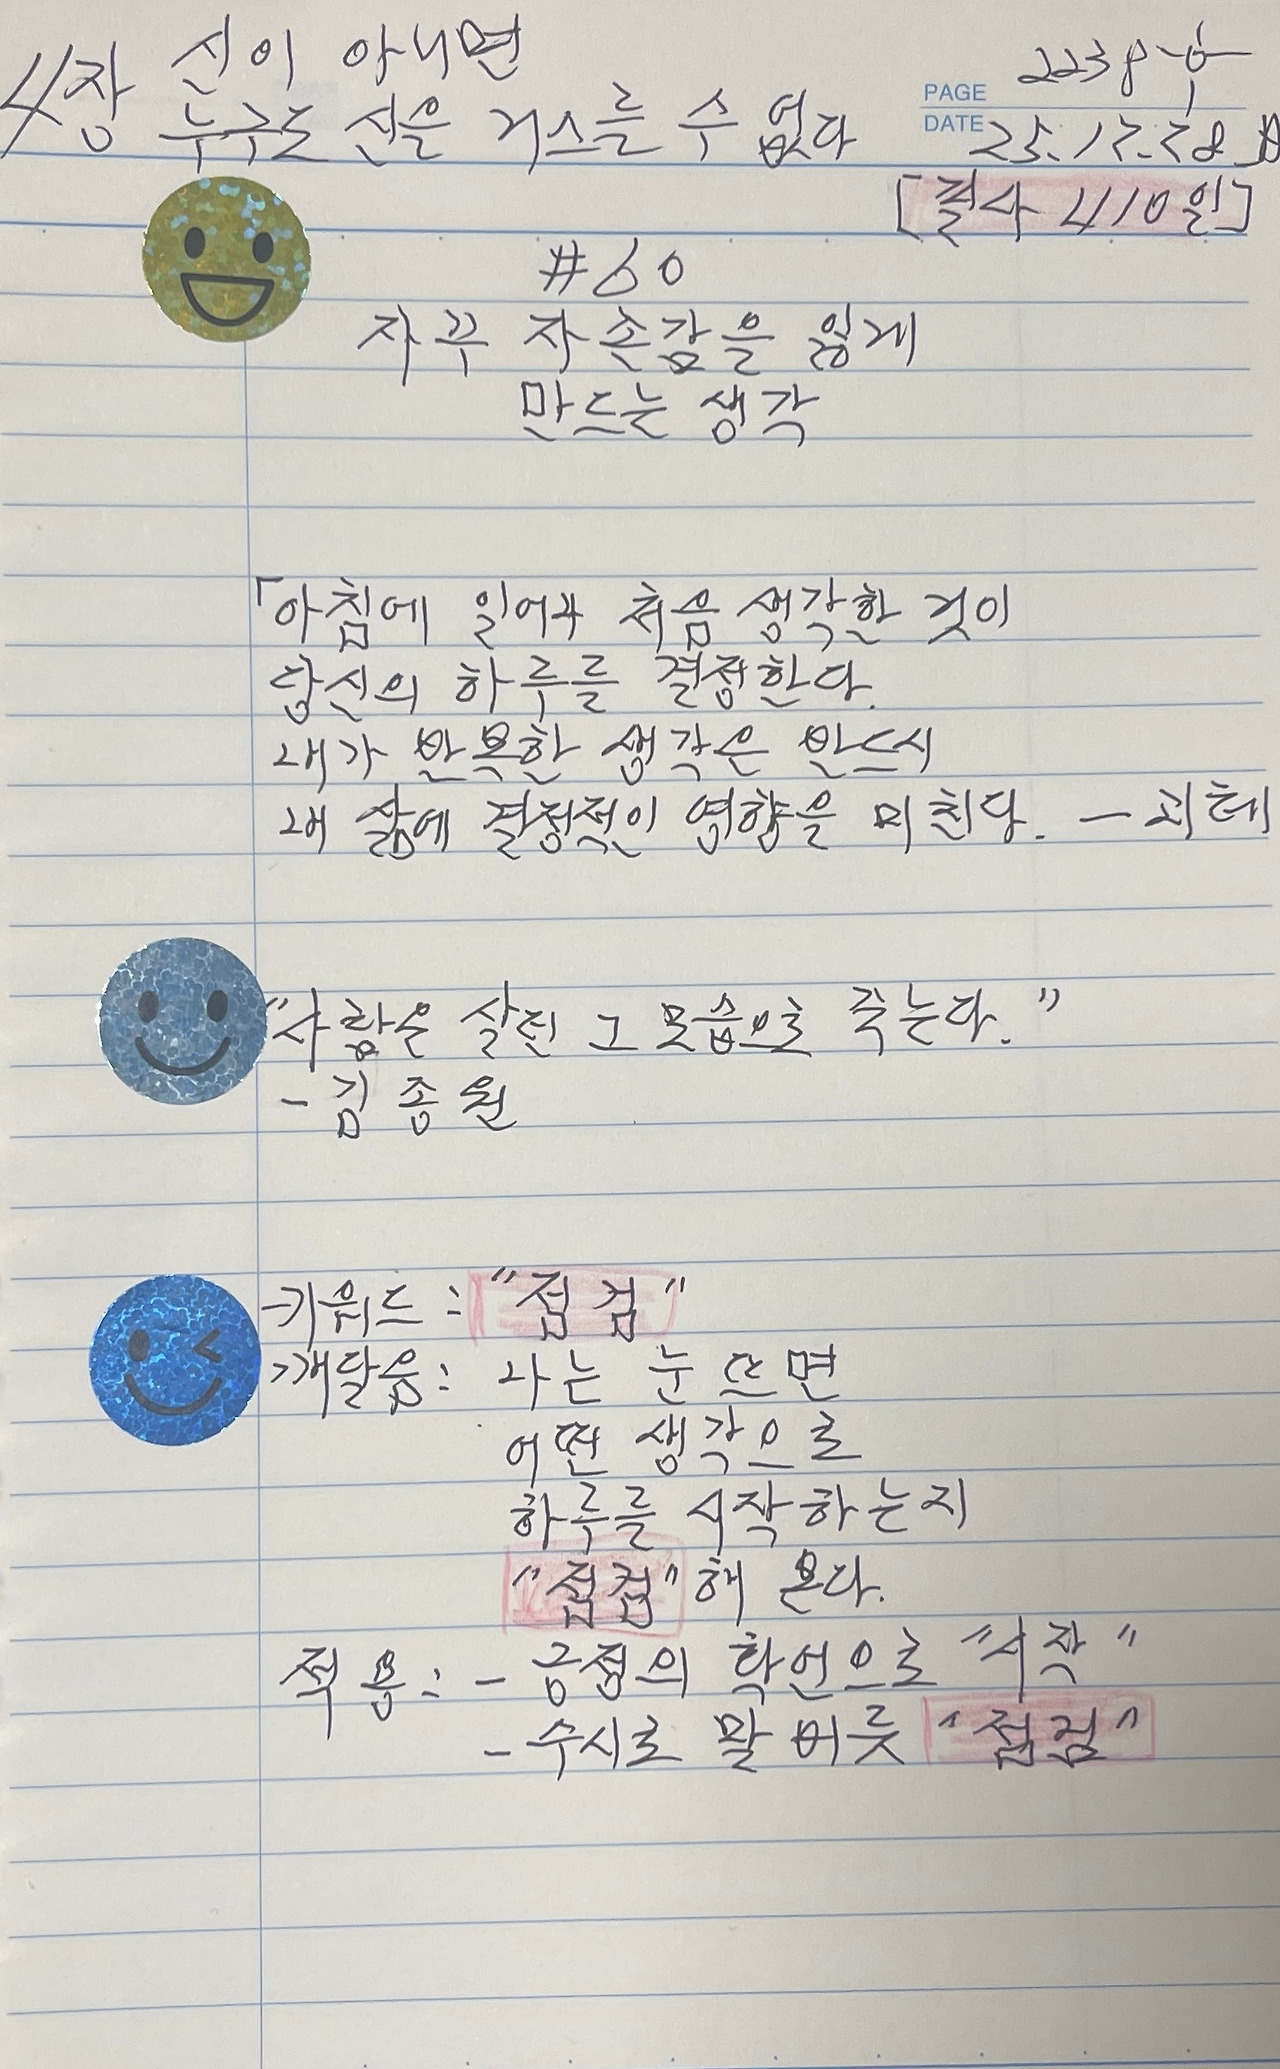 4장 신이 아니면
누구도 신을 거스를 수 없다
PAGE 2238
DATE 25.12.28 日
[필사 410일]
#60
자꾸 자존감을 잃게
만드는 생각
「아침에 일어나 처음 생각한 것이
당신의 하루를 결정한다.
내가 반복한 생각은 반드시
내 삶에 결정적인 영향을 미친다. - 괴테
"사람은 살던 그 모습으로 죽는다."
- 김종원
키워드 : "점검"
깨달음 : 나는 눈 뜨면
어떤 생각으로
하루를 시작하는지
"점검"해 본다.
적용 : - 긍정의 확언으로 "시작"
- 수시로 말 버릇 "점검"